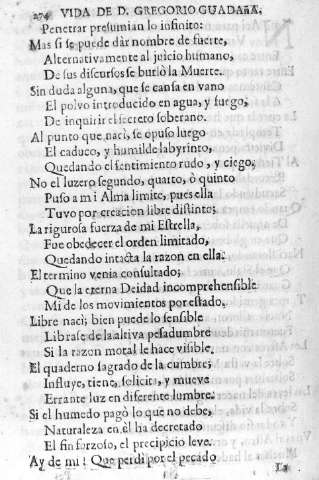 274 VIDA DE D. GREGORIO GUADAñA,
Penetrar presumian lo infinito:
Mas si se puede dàr nombre de fuerte,
Alternativamente al juicio humano,
De sus discursos se burlò la Muerte.
Sin duda alguna, que se cansa en vano
El polvo introducido en agua, y fuego,
De inquirir el secreto soberano.
Al punto que naci, se opuso luego
El caduco, y humilde labyrinto,
Quedando el sentimiento rudo, y ciego,
No el luzero segundo, quarto, ò quinto
Puso a mi Alma limite, pues ella
Tuvo por creacion libre distinto;
La rigurosa fuerza de mi Estrella,
Fue obedecer el orden limitado,
Quedando intacta la razon en ella:
El termino venia consultado;
Que la eterna Deidad incomprehensible
Mide los movimientos por estado,
Libre naci; bien puede lo sensible
Librarse de la altiva pesadumbre
Si la razon motal le hace visible.
El quaderno sagrado de la cumbre;
Influye, tiene, solicita, y mueve
Errante luz en diferente lumbre.
Si el humedo pagò lo que no debe,
Naturaleza en èl ha decretado
El fin forzoso, el precipicio leve.
Ay de mi! Que perdi por el pecado
La